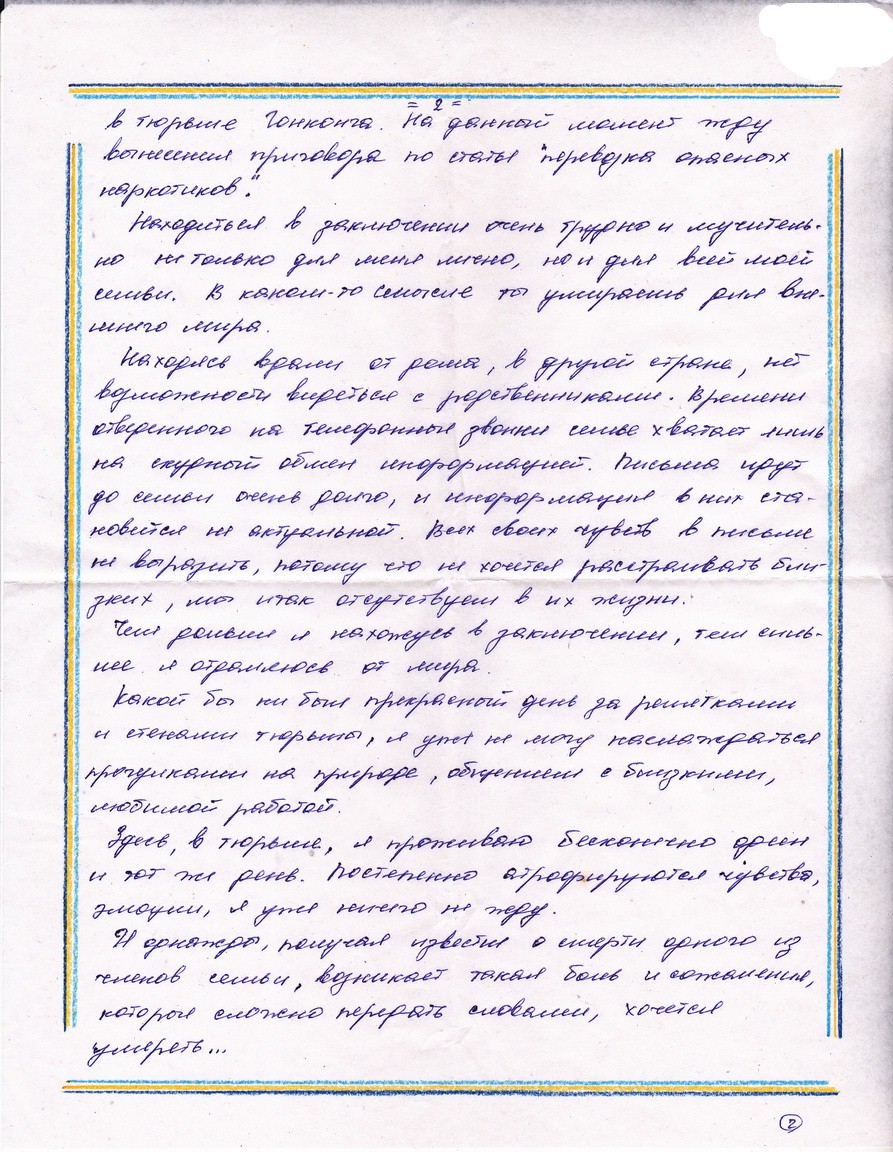 = 2 =
в тюрьме Гонконга. На данный момент жду
вынесения приговора по статье "перевозка опасных
наркотиков".
Находиться в заключении очень трудно и мучитель-
но не только для меня лично, но и для всей моей
семьи. В каком-то смысле ты умираешь для вне-
шнего мира.
Находясь вдали от дома, в другой стране, нет
возможности видеться с родственниками. Времени
отведенного на телефонные звонки семье хватает лишь
на скудный обмен информацией. Письма идут
до семьи очень долго, и информация в них ста-
новится не актуальной. Всех своих чувств в письме
не выразить, потому что не хочется расстраивать бли-
зких, мы итак отсутствуем в их жизни.
Чем дольше я нахожусь в заключении, тем силь-
нее я отдаляюсь от мира.
Какой бы ни был прекрасный день за решетками
и стенами тюрьмы, я уже не могу наслаждаться
прогулками на природе, общением с близкими,
любимой работой.
Здесь, в тюрьме, я проживаю бесконечно один
и тот же день. Постепенно атрофируются чувства,
эмоции, я уже ничего не жду.
И однажды, получая известие о смерти одного из
членов семьи, возникает такая боль и сожаления,
которые сложно передать словами, хочется
умереть...
2